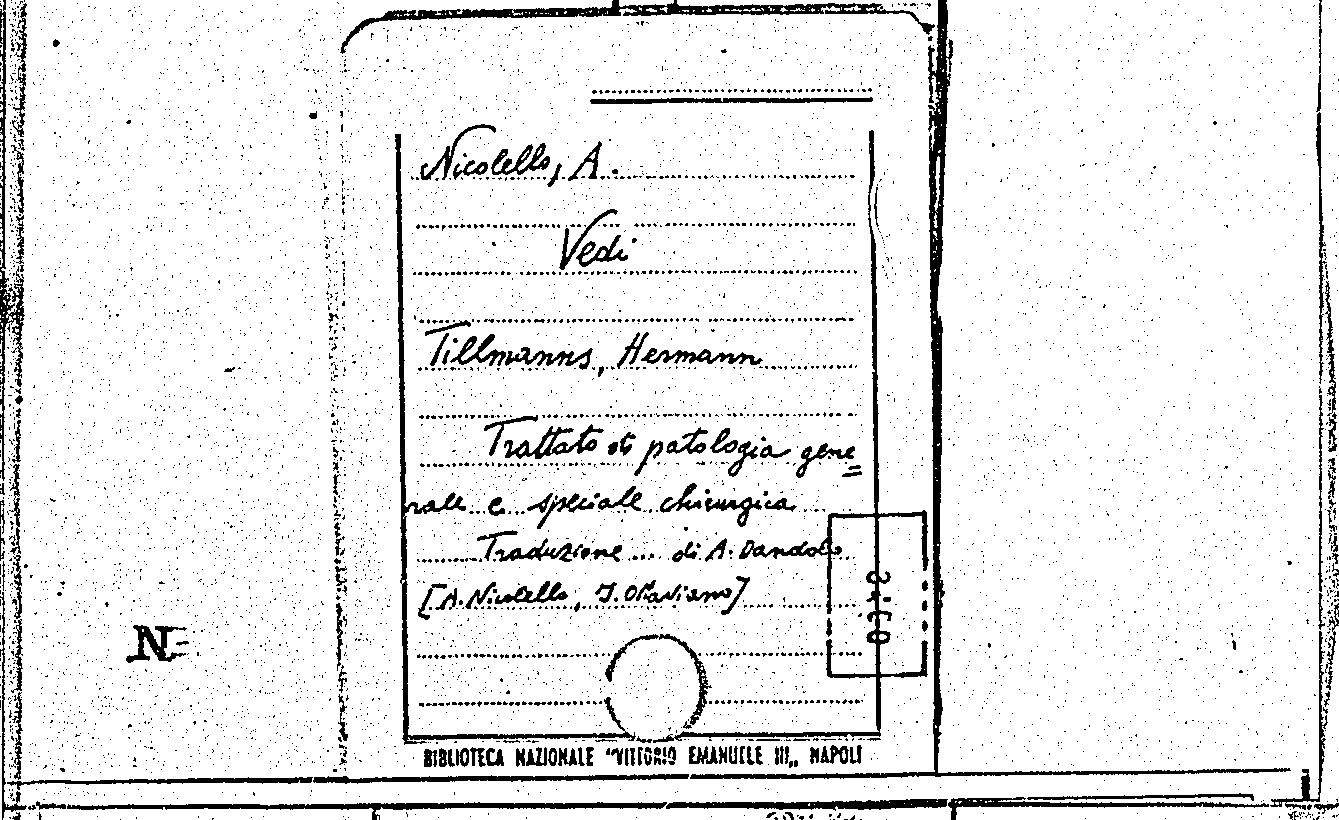 Nicolello, A.
Vedi
Tillmanns, Hermann
Trattato di patologia gene
rale e speciale chirurgica
Traduzione ... di A. Dandolo
[A. Nicolello, J. Ottaviano]
N
BIBLIOTECA NAZIONALE "VITTORIO EMANUELE III„ NAPOLI